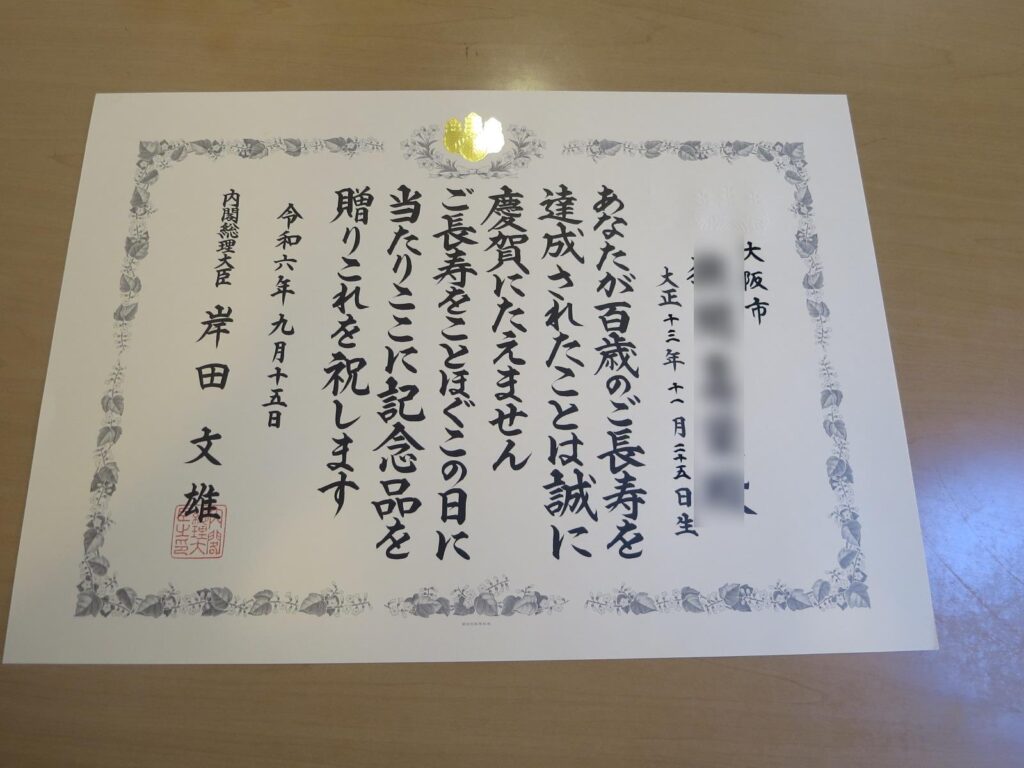 大阪市
大正十三年十一月二十五日生
あなたが百歳のご長寿を
達成されたことは誠に
慶賀にたえません
ご長寿をことほぐこの日に
当たりここに記念品を
贈りこれを祝します
令和六年九月十五日
内閣総理大臣 岸田文雄